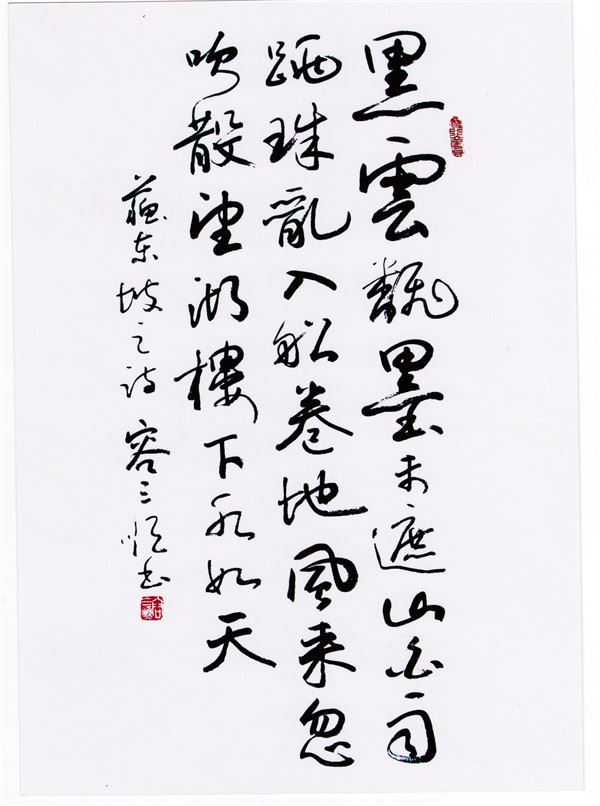 黑雲飜墨未遮山白雨
跳珠亂入船卷地風来忽
吹散望湖樓下水如天
蘇东坡之詩 容三书